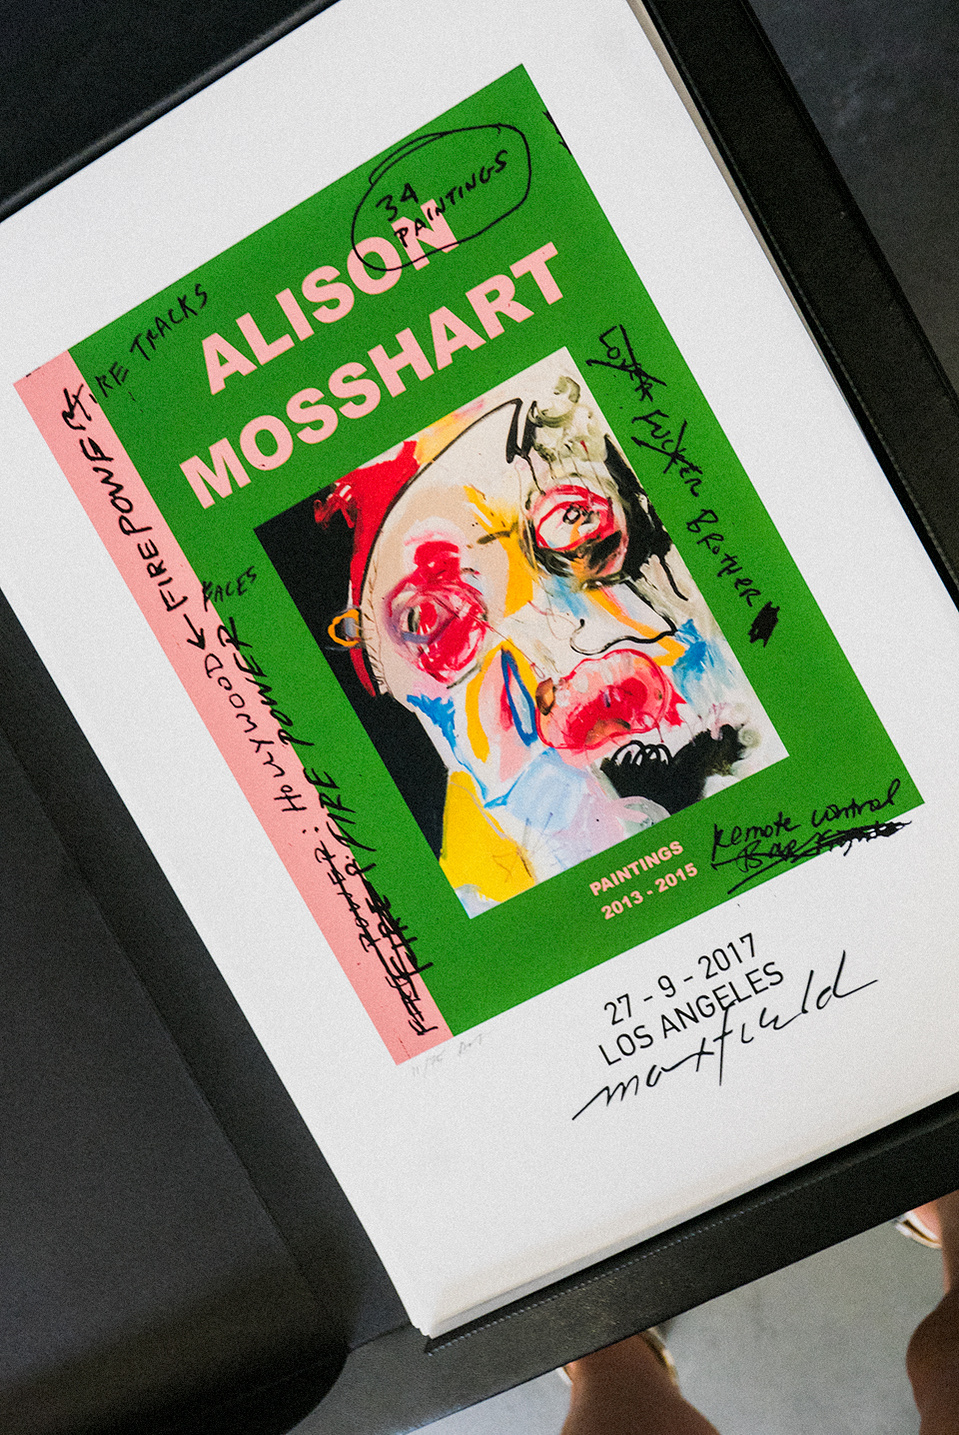 34
PAINTINGS
ALISON
MOSSHART
TIRE TRACKS
FIREPOWER
FACES
HOLLYWOOD ← FIREPOWER
POWER: HOLLYWOOD
FIRE POWER
FUCKER BROTHER
PAINTINGS
2013 - 2015
Remote control
27 - 9 - 2017
LOS ANGELES
maxfield